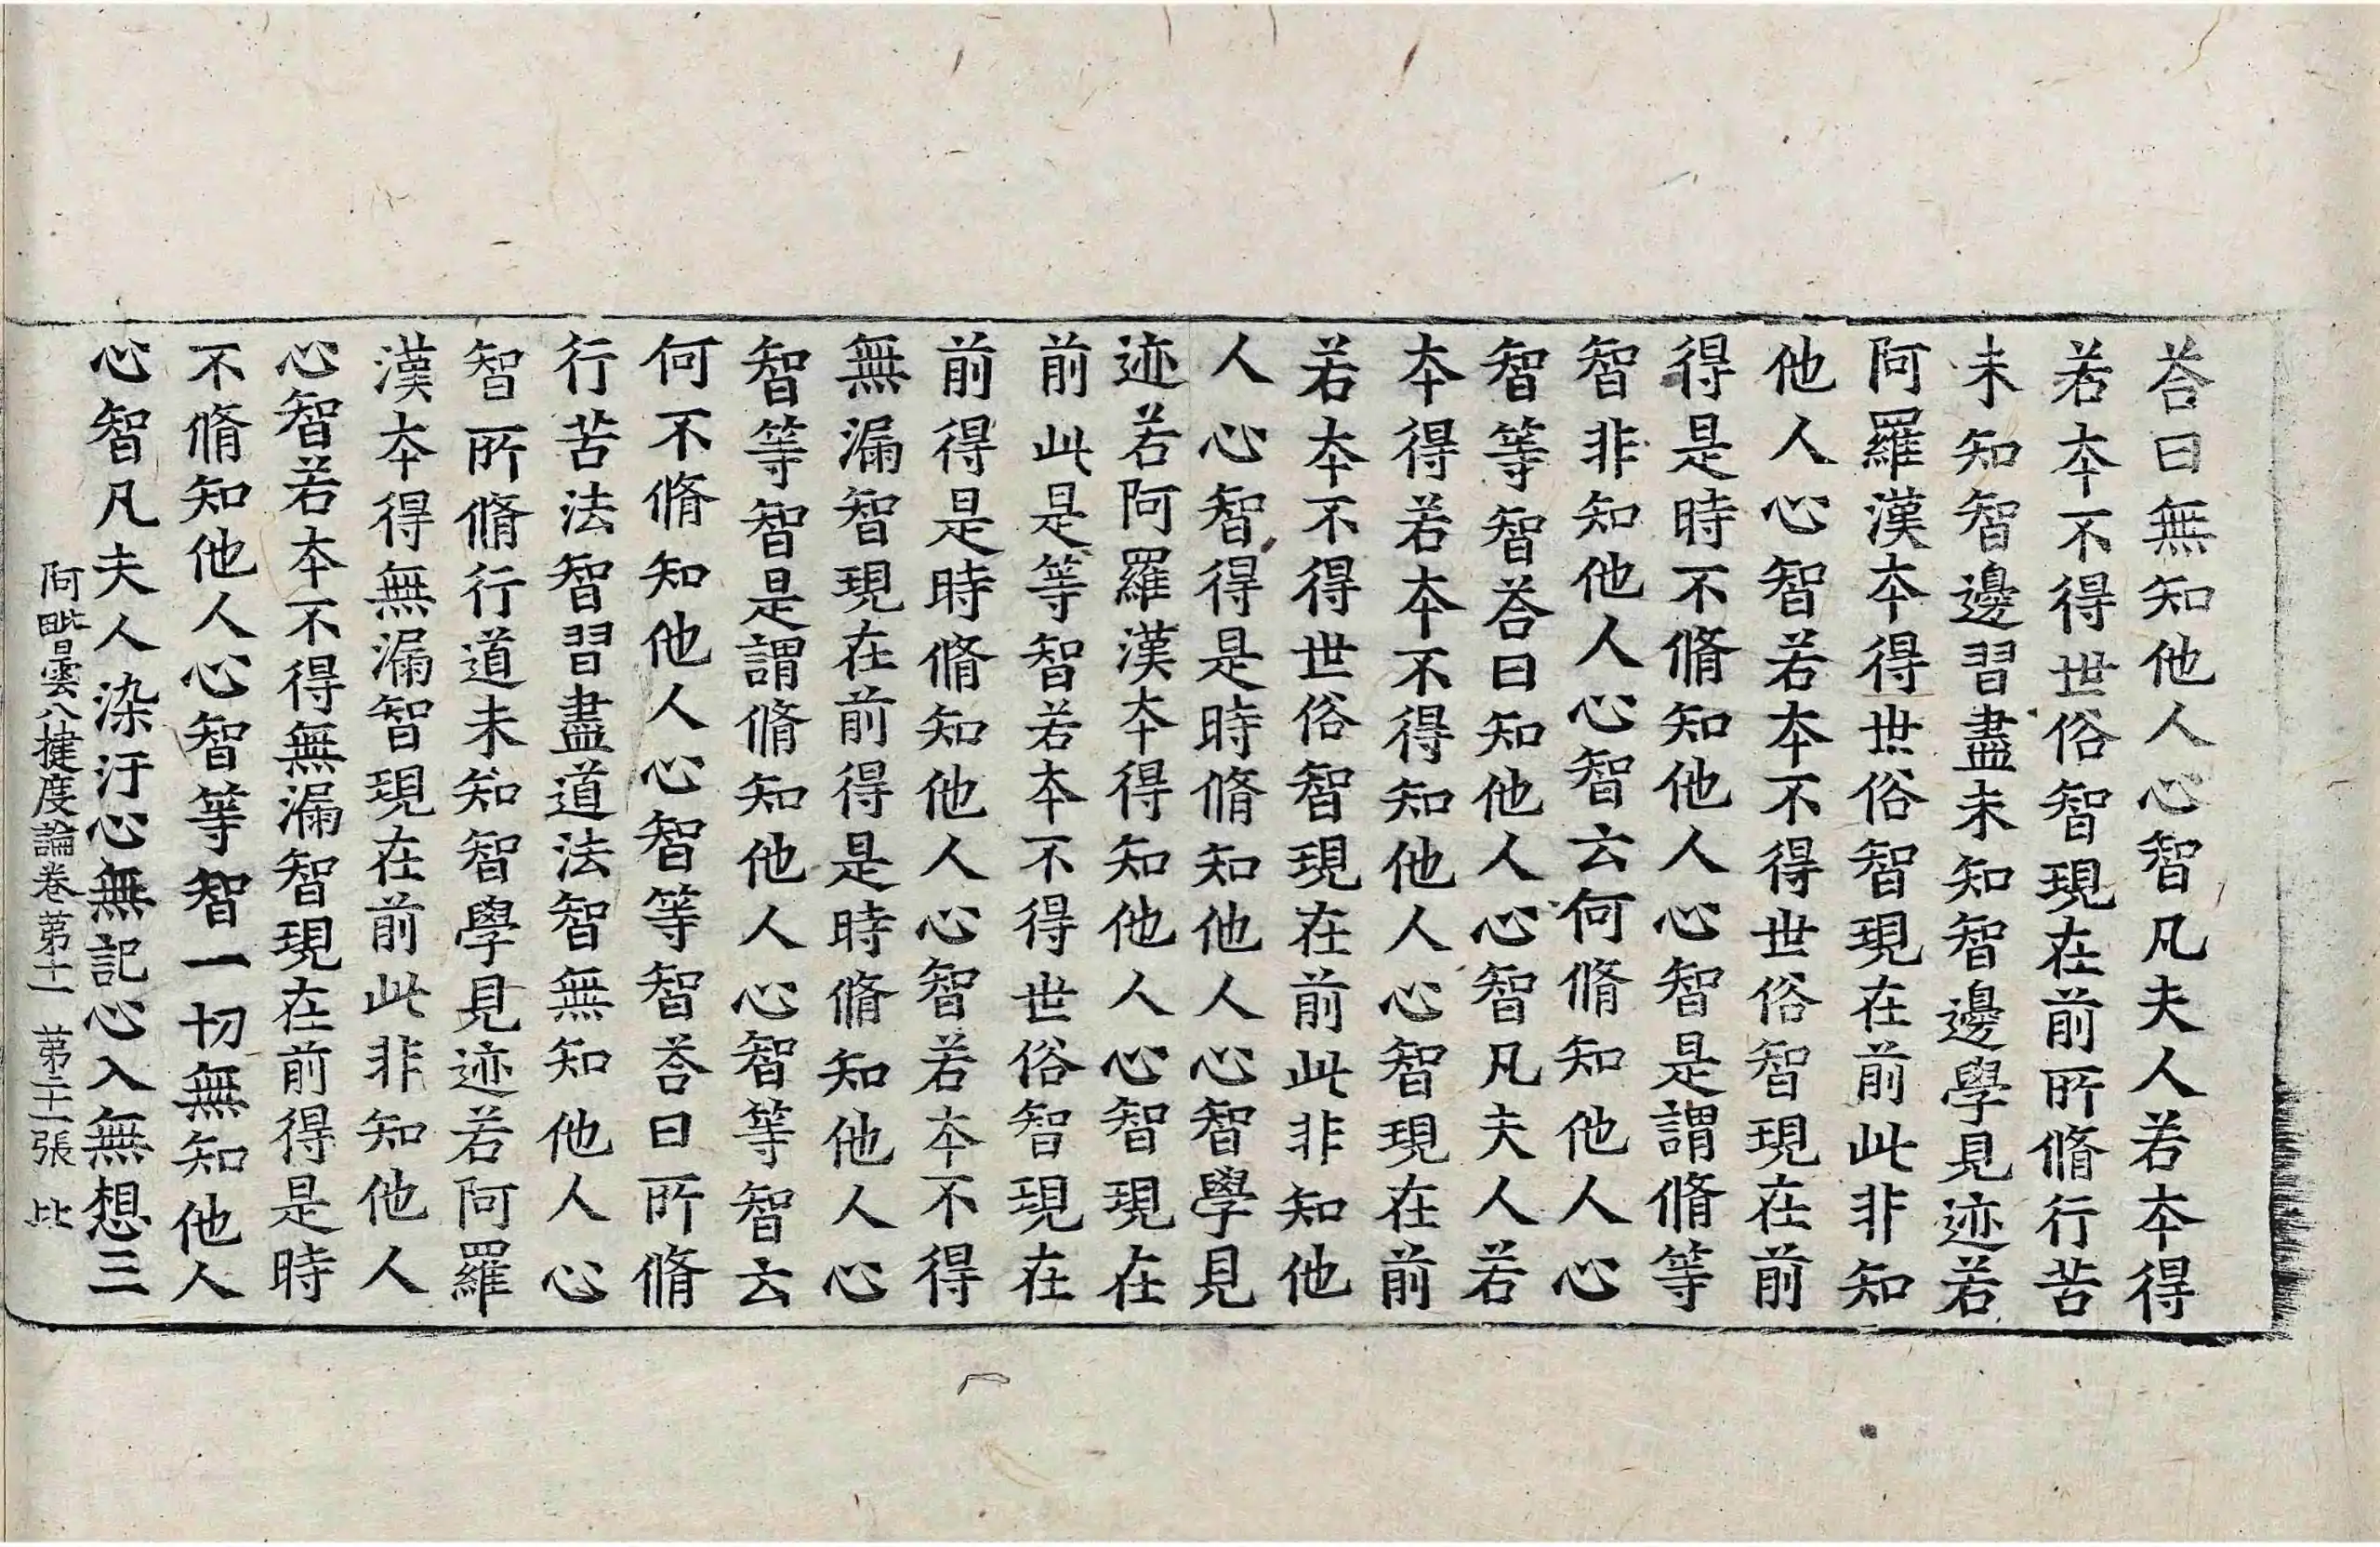 荅曰無知他人心智凡夫人若本得
若本不得世俗智現在前所脩行苦
未知智邊習盡未知智邊學見迹若
阿羅漢本得世俗智現在前此非知
他人心智若本不得世俗智現在前
得是時不脩知他人心智是謂脩等
智非知他人心智云何脩知他人心
智等智荅曰知他人心智凡夫人若
本得若本不得知他人心智現在前
若本不得世俗智現在前此非知他
人心智得是時脩知他人心智學見
迹若阿羅漢本得知他人心智現在
前此是等智若本不得世俗智現在
前得是時脩知他人心智若本不得
無漏智現在前得是時脩知他人心
智等智是謂脩知他人心智等智云
何不脩知他人心智等智荅曰所脩
行苦法智習盡道法智無知他人心
智所脩行道未知智學見迹若阿羅
漢本得無漏智現在前此非知他人
心智若本不得無漏智現在前得是時
不脩知他人心智等智一切無知他人
心智凡夫人染汙心無記心入無想三
阿毗曇八揵度論卷第十一 第二十二張 比